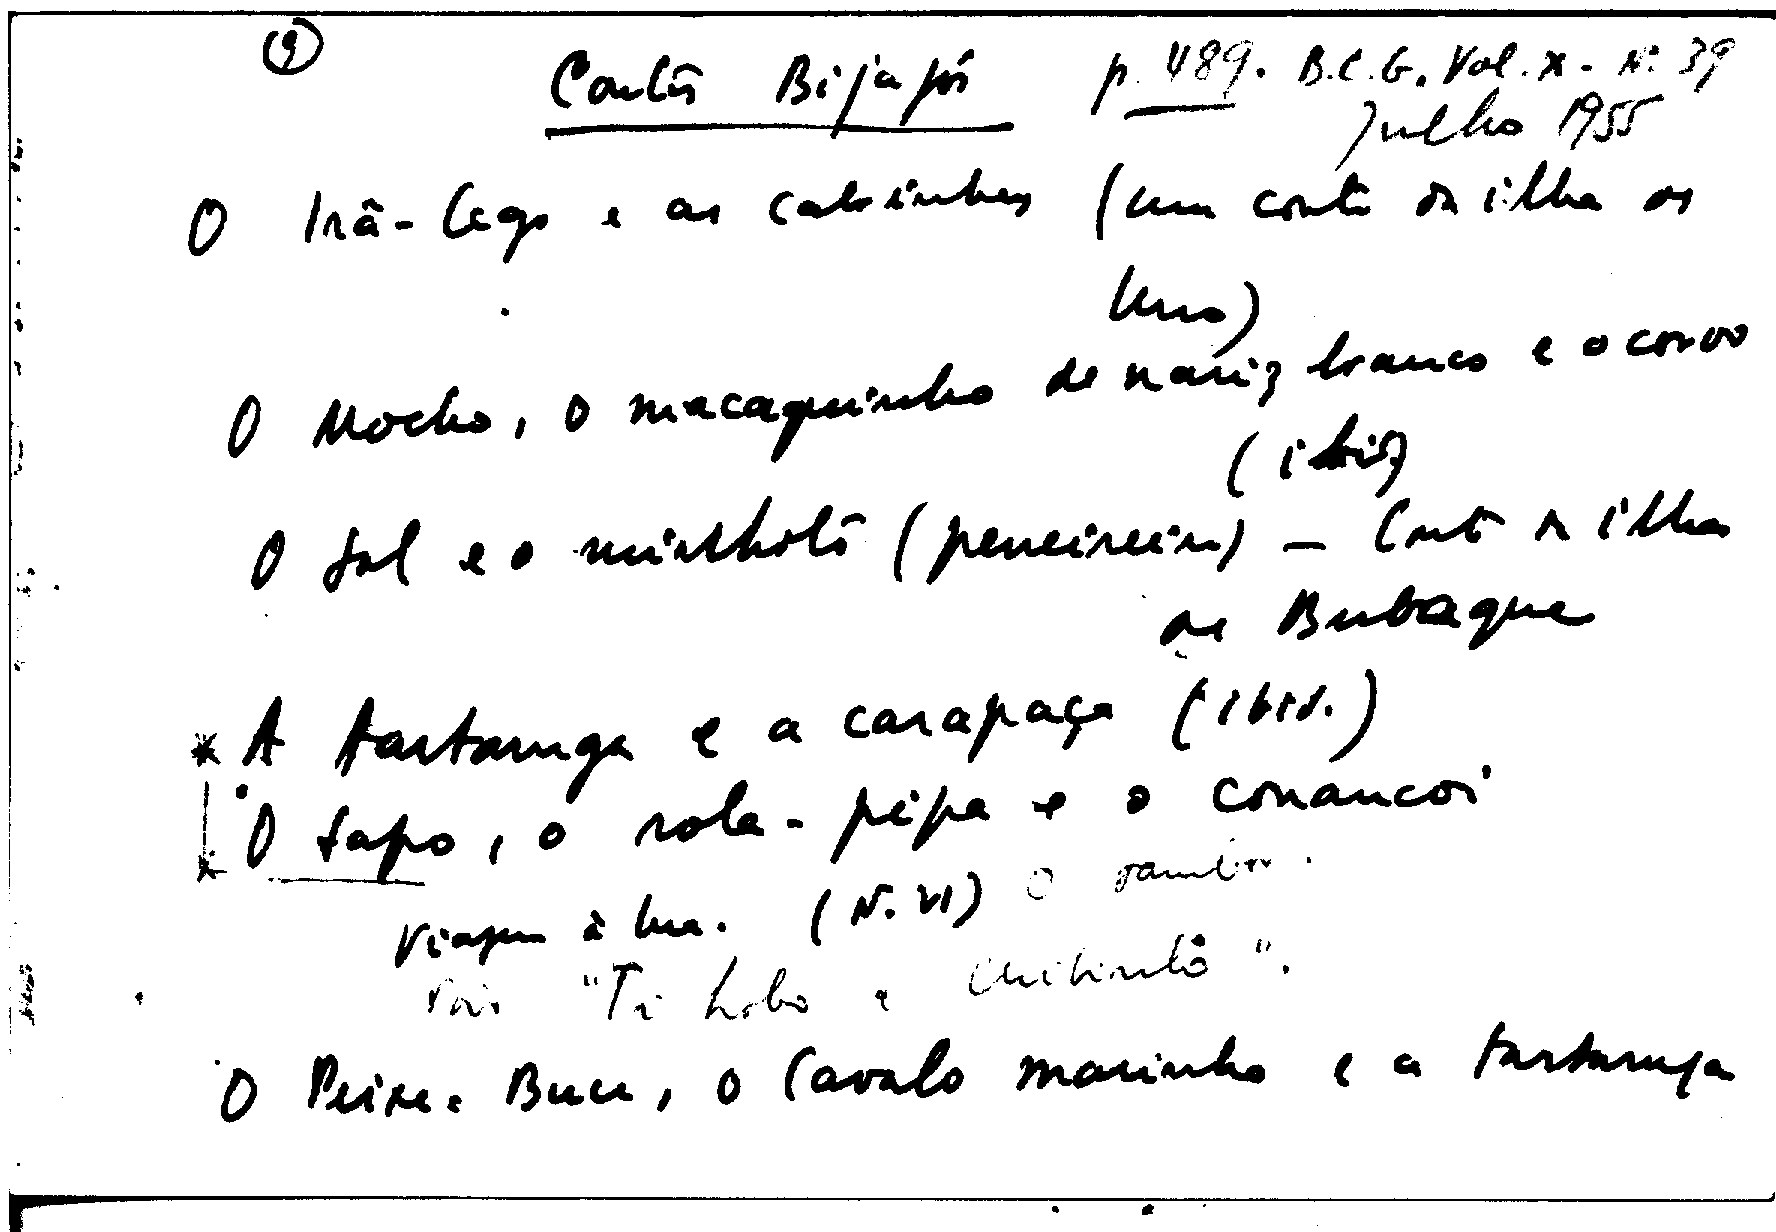 9
Contos Bijagós p. 489. B.C.G. Vol. X - Nº 39
Julho 1955
O Irã-Cego e as cabrinhas (um conto da ilha de
Uno)
O Mocho, o macaquinho de nariz branco e o corvo
(ibid)
O Sol e o minhoto (peneireiro) – Conto da ilha
de Bubaque
* A tartaruga e a carapaça (ibid.)
* O Sapo, o rola-pipa e o conancoi
Viagem à lua. (N. VI) O tambor.
"Ti Lobo e Chibinhô".
O Peixe-Bucu, o Cavalo marinho e a tartaruga